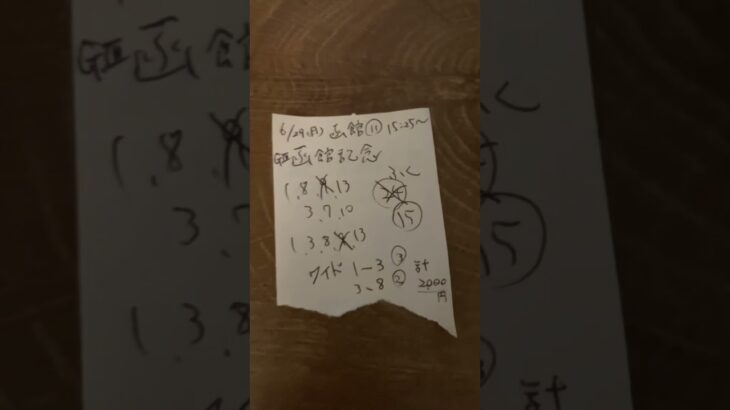 6/29(月) 函館⑪ 15:25〜
GⅢ函館記念
1.8.13
3.7.10
⑮
1 3.8. 13
ワイド 1―3 ③ 計
3、8 ② 2,000
円